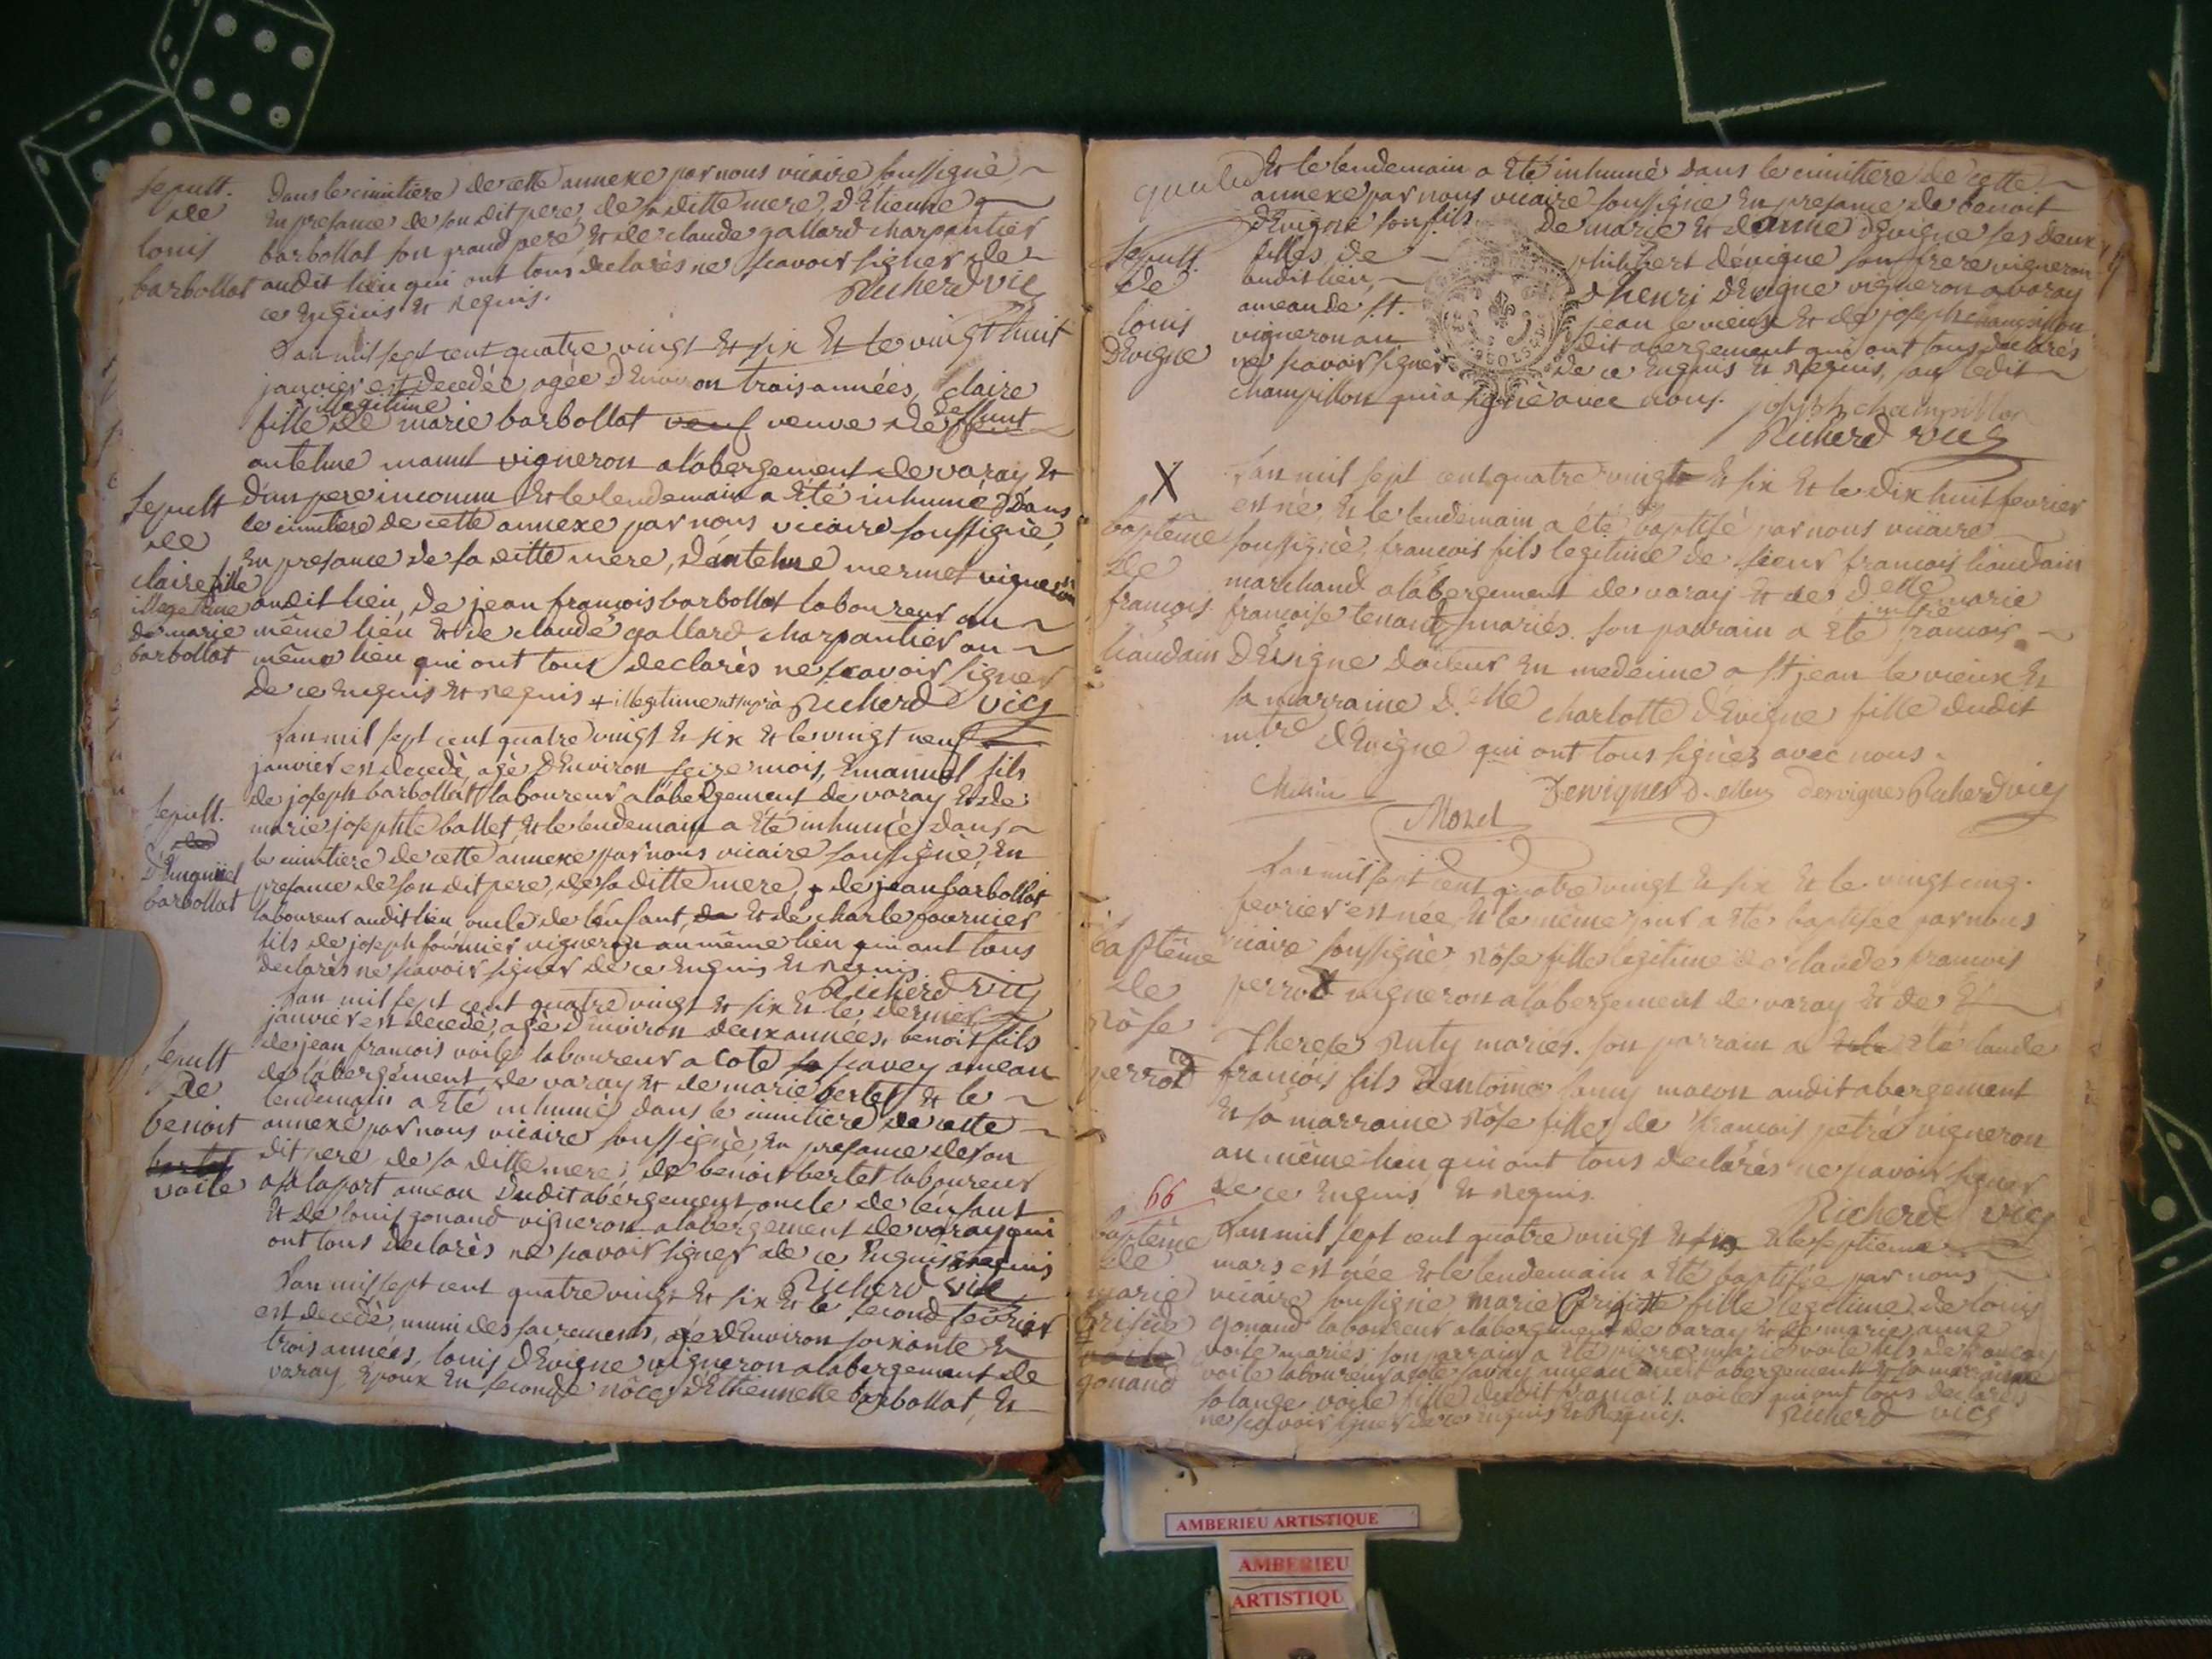 Sepult.
de
louis
barbollat
dans le cimitiere de cette annexe par nous vicaire soussigné
en presance de son dit pere, de sa ditte mere, d'Etienne
barbollat son grand pere et de claude gallard charpantier
audit lieu qui ont tous declarès ne scavoir signer de
ce enquis et requis. Richerd vic
L'an mil sept cent quatre vingt et six et le vingt huit
janvier est decedée agée d'environ trois années, claire
fille illegitime de marie barbollat veuf veuve de deffunt
antelme vigneron a l'abergement de varay et
Sepult
de
claire fille
illegitime
de marie
barbollat
d'un pere inconnu et le lendemain a été inhumé dans
le cimitiere de cette annexe par nous vicaire soussigné,
en presance de sa ditte mere, d'antelme mermet vigneron
audit lieu, de jean francois barbollat laboureur au
même lieu et de claude gallard charpantier au
même lieu qui ont tous declarès ne scavoir signer
de ce enquis et requis + illegitime ut supra Richerd vic
L'an mil sept cent quatre vingt et six et le vingt neuf
janvier est decedè, agè d'environ seize mois, Emanuel fils
de joseph barbollat laboureur a l'abergement de varay et de
Sepult.
de
d'Emanuel
barbollat
marie josephte ballet, et le lendemain a été inhumé dans
le cimitiere de cette annexe par nous vicaire soussigné, en
presance de son dit pere, de sa ditte mere, de jean barbollat
laboureur audit lieu oncle de l'enfant, de et de charle fournier
fils de joseph fournier vigneron au même lieu qui ont tous
declarès ne scavoir signer de ce enquis et requis.
Richerd vic
L'an mil sept cent quatre vingt et six et le dernier
janvier est decedè, agè d'environ deux années, benoit fils
Sepult
de
benoit
bertet
voile
de jean francois voile laboureur a cote savey ameau
de l'abergement de varay et de marie bertet et le
lendemain a été inhumé dans le cimitiere de cette
annexe par nous vicaire soussigné, en presance de son
dit pere, de sa ditte mere, de benoit bertet laboureur
a la port ameau dudit abergement, oncle de l'enfant
et de louis gonand vigneron a l'abergement de varay qui
ont tous declarès ne scavoir signer de ce enquis et requis
Richerd vic
L'an mil sept cent quatre vingt et six et le second fevrier
est decedè, muni des sacrements, agé d'environ soixante et
trois années, louis dEvigne vigneron a l'abergement de
varay, epoux en seconde nôces d'Ethiennette barbollat, et
et le lendemain a été inhumé dans le cimitiere de cette
Sepult.
de
louis
dEvigne
annexe par nous vicaire soussigné en presance de benoit
dEvigne son fils De marie et d'anne dEvigne ses deux
filles, de philibert dévigne son frere vigneron
audit lieu, d'henri dEvigne vigneron a varay
ameau de st. jean le vieux et de joseph champillon
vigneron au dit abergement qui ont tous declarés
ne scavoir signer de ce enquis et requis, sauf ledit
champillon qui a signé avec nous. joseph champillon
Richerd vic
X
L'an mil sept cent quatre vingt et six et le dix huit fevrier
est né et le lendemain a été baptisé par nous vicaire
baptême
de
francois
liaudain
soussigné, francois fils legitime de sieur francois liaudain
marchand a l'abergement de varay et de delle marie
francoise tenand mariés. son parrain a été mtre francois
dEvigne docteur en medecine a st jean le vieux et
sa marraine d.elle charlotte dEvigne fille dudit
mtre dEvigne qui ont tous signés avec nous.
Desvignes D. Desvignes Richerd vic
Morel
L'an mil sept cent quatre vingt et six et le vingt cinq
fevrier est née et le même jour a été baptisée par nous
baptême
de
Rôse
perrod
vicaire soussigné, Rôse fille legitime de claude francois
perrod vigneron a l'abergement de varay et de
Therese Ruty mariés. son parrain a été claude
francois fils d'antoine macon audit abergement
et sa marraine Rôse fille de francois vigneron
au même lieu qui ont tous declarès ne scavoir signer
de ce enquis et requis.
Richerd vic
66
baptême
de
marie
gonand
L'an mil sept cent quatre vingt et six et le septieme
mars est née et le lendemain a été baptisée par nous
vicaire soussigné, marie fille legitime de louis
gonand laboureur a l'abergement de varay et de marie anne
voile mariés. son parrain a été pierre marie voile fils de francois
voile laboureur a cote savay ameau dudit abergement et sa marraine
solange voile fille dudit francois voile qui ont tous declarés
ne scavoir signer de ce enquis et requis. Richerd vic
AMBERIEU ARTISTIQUE
AMBERIEU
ARTISTIQU